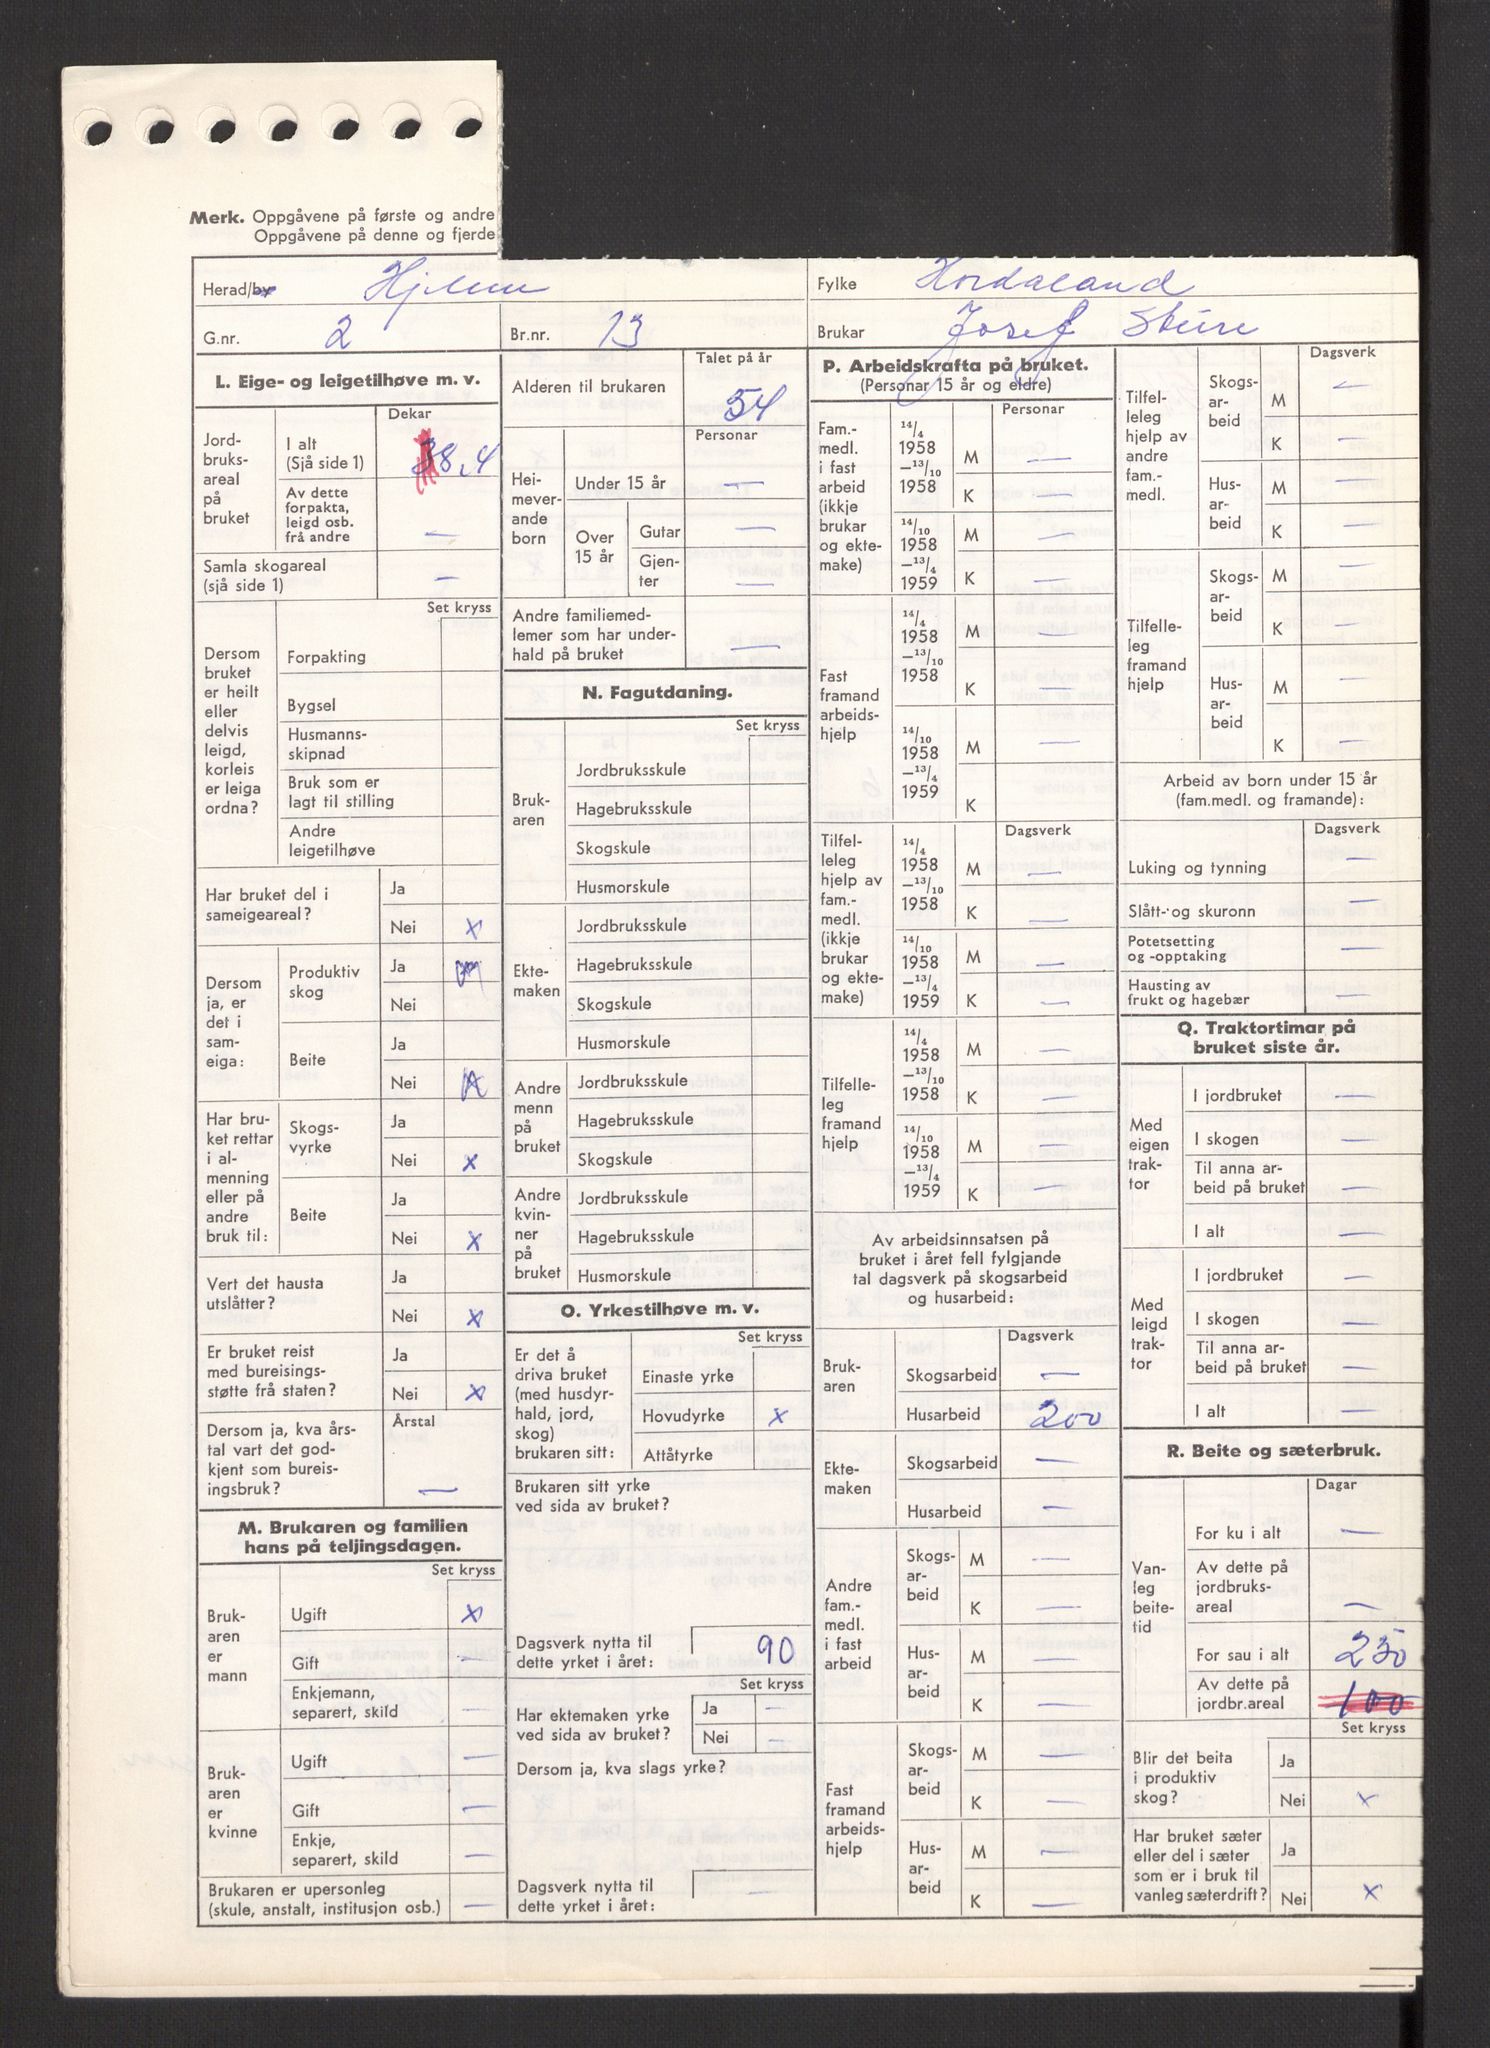 Merk. Oppgåvene på første og andre
Oppgåvene på denne og fjerde
Herad/by Hjelme
Fylke Hordaland
G.nr. 2
Br.nr. 13
Brukar Josef Sture
L. Eige- og leigetilhøve m. v.
Dekar
Jord-
bruks-
areal
på
bruket
I alt
(Sjå side 1) 38,4
Av dette
forpakta,
leigd osb.
frå andre —
Samla skogareal
(sjå side 1) —
Set kryss
Dersom
bruket
er heilt
eller
delvis
leigd,
korleis
er leiga
ordna?
Forpakting
Bygsel
Husmanns-
skipnad
Bruk som er
lagt til stilling
Andre
leigetilhøve
Har bruket del i
sameigeareal?
Ja
Nei x
Dersom
ja, er
det i
sam-
eiga:
Produktiv
skog
Ja
Nei
Beite
Ja
Nei
Har bru-
ket rettar
i al-
menning
eller på
andre
bruk til:
Skogs-
vyrke
Ja
Nei x
Beite
Ja
Nei x
Vert det hausta
utslåtter?
Ja
Nei x
Er bruket reist
med bureisings-
støtte frå staten?
Ja
Nei x
Dersom ja, kva års-
tal vart det god-
kjent som bureis-
ingsbruk?
Årstal
—
M. Brukaren og familien
hans på teljingsdagen.
Set kryss
Bruk-
aren
er
mann
Ugift x
Gift —
Enkjemann,
separert, skild —
Bruk-
aren
er
kvinne
Ugift —
Gift —
Enkje,
separert, skild —
Brukaren er upersonleg
(skule, anstalt, institusjon osb.) —
Talet på år
Alderen til brukaren 54
Personar
Hei-
mever-
ande
born
Under 15 år —
Over
15 år
Gutar —
Gjen-
ter —
Andre familiemed-
lemer som har under-
hald på bruket —
N. Fagutdaning.
Set kryss
Bruk-
aren
Jordbruksskule
Hagebruksskule
Skogskule
Husmorskule
Ekte-
maken
Jordbruksskule
Hagebruksskule
Skogskule
Husmorskule
Andre
menn
på
bruket
Jordbruksskule
Hagebruksskule
Skogskule
Andre
kvin-
ner
på
bruket
Jordbruksskule
Hagebruksskule
Husmorskule
O. Yrkestilhøve m. v.
Set kryss
Er det å
driva bruket
(med husdyr-
hald, jord,
skog)
brukaren sitt:
Einaste yrke
Hovudyrke x
Attåtyrke
Brukaren sitt yrke
ved sida av bruket?
Dagsverk nytta til
dette yrket i året: 90
Set kryss
Har ektemaken yrke
ved sida av bruket?
Ja —
Nei —
Dersom ja, kva slags yrke?
Dagsverk nytta til
dette yrket i året: —
P. Arbeidskrafta på bruket.
(Personar 15 år og eldre)
Personar
Fam.-
medl.
i fast
arbeid
(ikkje
brukar
og ekte-
make)
14/4
1958
—13/10
1958
M —
K —
14/10
1958
—13/4
1959
M —
K —
Fast
framand
arbeids-
hjelp
14/4
1958
—13/10
1958
M —
K —
14/10
1958
—13/4
1959
M —
K —
Dagsverk
Tilfel-
leleg
hjelp av
fam.-
medl.
(ikkje
brukar
og ekte-
make)
14/4
1958
—13/10
1958
M —
K —
14/10
1958
—13/4
1959
M —
K —
Tilfelle-
leg
framand
hjelp
14/4
1958
—13/10
1958
M —
K —
14/10
1958
—13/4
1959
M —
K —
Av arbeidsinnsatsen på
bruket i året fell fylgjande
tal dagsverk på skogsarbeid
og husarbeid:
Dagsverk
Bruk-
aren
Skogsarbeid —
Husarbeid 200
Ekte-
maken
Skogsarbeid —
Husarbeid —
Andre
fam.-
medl.
i fast
arbeid
Skogs-
ar-
beid
M —
K —
Hus-
ar-
beid
M —
K —
Fast
framand
arbeids-
hjelp
Skogs-
ar-
beid
M —
K —
Hus-
ar-
beid
M —
K —
Dagsverk
Tilfel-
leleg
hjelp av
andre
fam.-
medl.
Skogs-
ar-
beid
M —
K —
Hus-
ar-
beid
M —
K —
Tilfelle-
leg
framand
hjelp
Skogs-
ar-
beid
M —
K —
Hus-
ar-
beid
M —
K —
Arbeid av born under 15 år
(fam.medl. og framande):
Dagsverk
Luking og tynning —
Slått- og skuronn —
Potetsetting
og -opptaking —
Hausting av
frukt og hagebær —
Q. Traktortimar på
bruket siste år.
Med
eigen
trak-
tor
I jordbruket —
I skogen —
Til anna ar-
beid på bruket —
I alt —
Med
leigd
trak-
tor
I jordbruket —
I skogen —
Til anna ar-
beid på bruket —
I alt —
R. Beite og sæterbruk.
Dagar
Van-
leg
beite-
tid
For ku i alt —
Av dette på
jordbruks-
areal —
For sau i alt 250
Av dette på
jordbr.areal 100
Set kryss
Blir det beita
i produktiv
skog?
Ja
Nei x
Har bruket sæter
eller del i sæter
som er i bruk til
vanleg sæterdrift?
Ja
Nei x